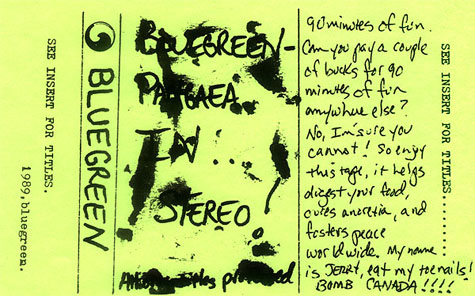 SEE INSERT FOR TITLES.
1989,bluegreen.
BLUEGREEN
BLUEGREEN-
PANGAEA
IN...
STEREO!
titles
90 minutes of fun.
Can you pay a couple
of bucks for 90
minutes of fun
anywhere else?
No, I'm sure you
cannot! So enjoy
this tape, it helps
digest your food,
cures anorexia, and
fosters peace
worldwide. My name
is JERRY, eat my toenails!
BOMB CANADA!!!!
SEE INSERT FOR TITLES.........